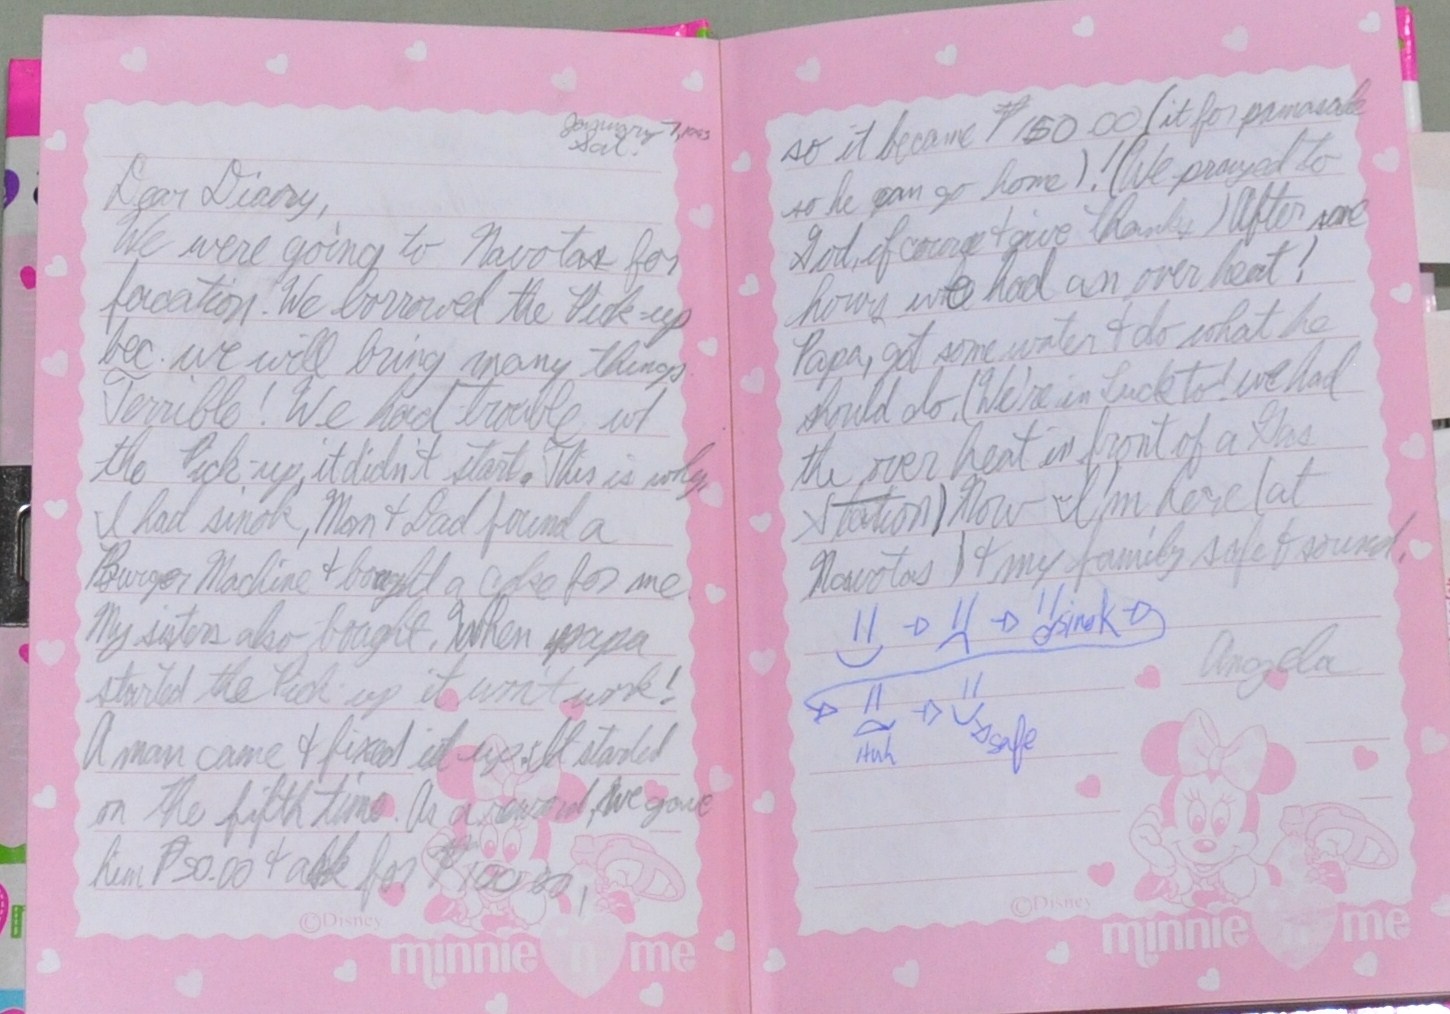 January 7,
Sat.
Dear Diary,
We were going to Navotas for
facation! We borrowed the Pick-up
bec. we will bring many things.
Terrible! We had trouble w/
the Pick-up, it didn't start. This is why
I had sinok, Mom & Dad found a
Burger Machine & bought a coke for me.
My sisters also bought. When papa
started the Pick-up it won't work!
A man came & fixed it up. It started
on the fifth time. As a reward, we gave
him ₱50.00 & ask for ₱100.00,
©Disney
minnie 'n me
so it became ₱150.00 (it for pamasahe
so he can go home)! (We prayed to
God, of courge & give thanks) After some
hours we had an over heat!
Papa, got some water & do what he
should do. (We're in Luck to! we had
the over heat in front of a Gas
Station) Now I'm here (at
Navotas) & my family safe & sound.
sinok
Angela
Huh
safe
©Disney
minnie 'n me